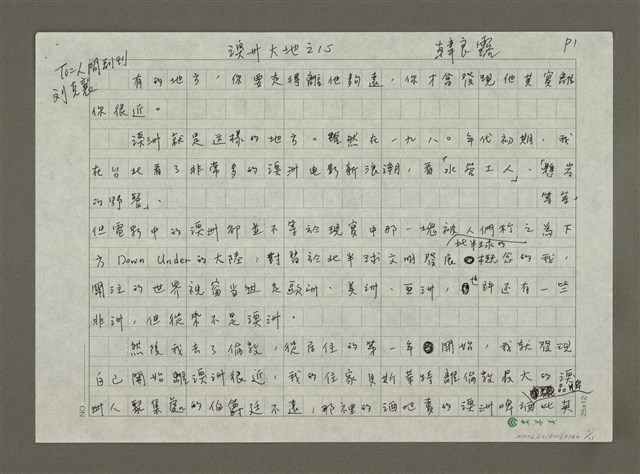 澳州大地之15 韓良露 P1
To=人間副刊
刘克襄
有的地方，你要走得離他夠遠，你才會發現他其實離
你很近。
澳洲就是這樣的地方。雖然在一九八〇年代初期，我
在台北看了非常多的澳洲电影新浪潮，看「水管工人」、「懸岩
的野餐」、等等，
但電影中的澳洲卻並不等於現實中那一塊被人們於之為下
北半球的
方 Down Under的大陸，對習於北半球文明發展概念的我，
關注的世界視窗當然是歐洲、美洲、亞洲，也許还有一些
非洲，但從來不是澳洲。
然後我去了倫敦，從居住的第一年開始，我就發現
自己開始離澳洲很近，我的住家貝斯華特離倫敦最大的澳
品牌
洲人聚集處的伯爵廷不遠，那裡的酒吧賣的澳洲啤酒比英
NO.
25x12